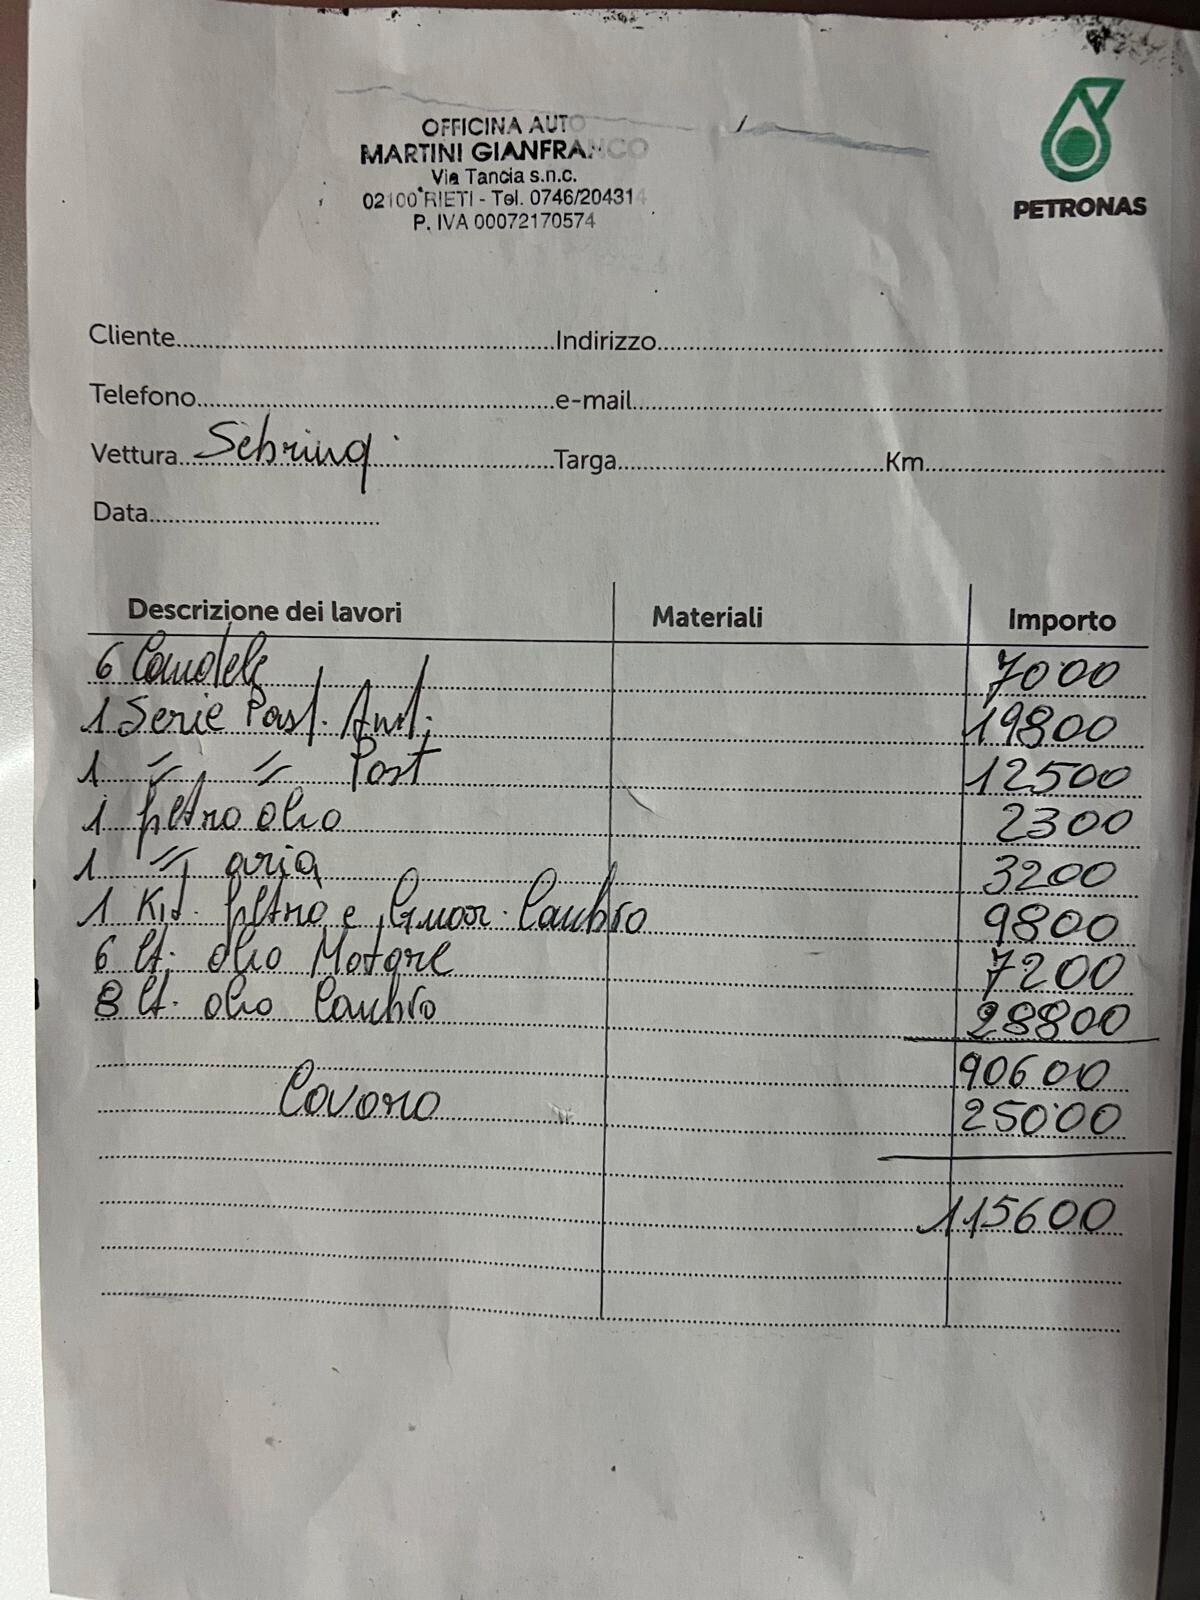 OFFICINA AUTO
MARTINI GIANFRANCO
Via Tancia s.n.c.
02100 RIETI - Tel. 0746/204314
P. IVA 00072170574
PETRONAS
Cliente Indirizzo
Telefono e-mail
Vettura Sebring Targa Km
Data
Descrizione dei lavori Materiali Importo
6 Candele 7000
1 Serie Past. Ant. 19800
1 〃 〃 Post 12500
1 filtro olio 2300
1 〃 aria 3200
1 Kit. filtro e Guar. Cambio 9800
6 lt. olio Motore 7200
8 lt. olio Cambio 28800
90600
Lavoro 25000
115600